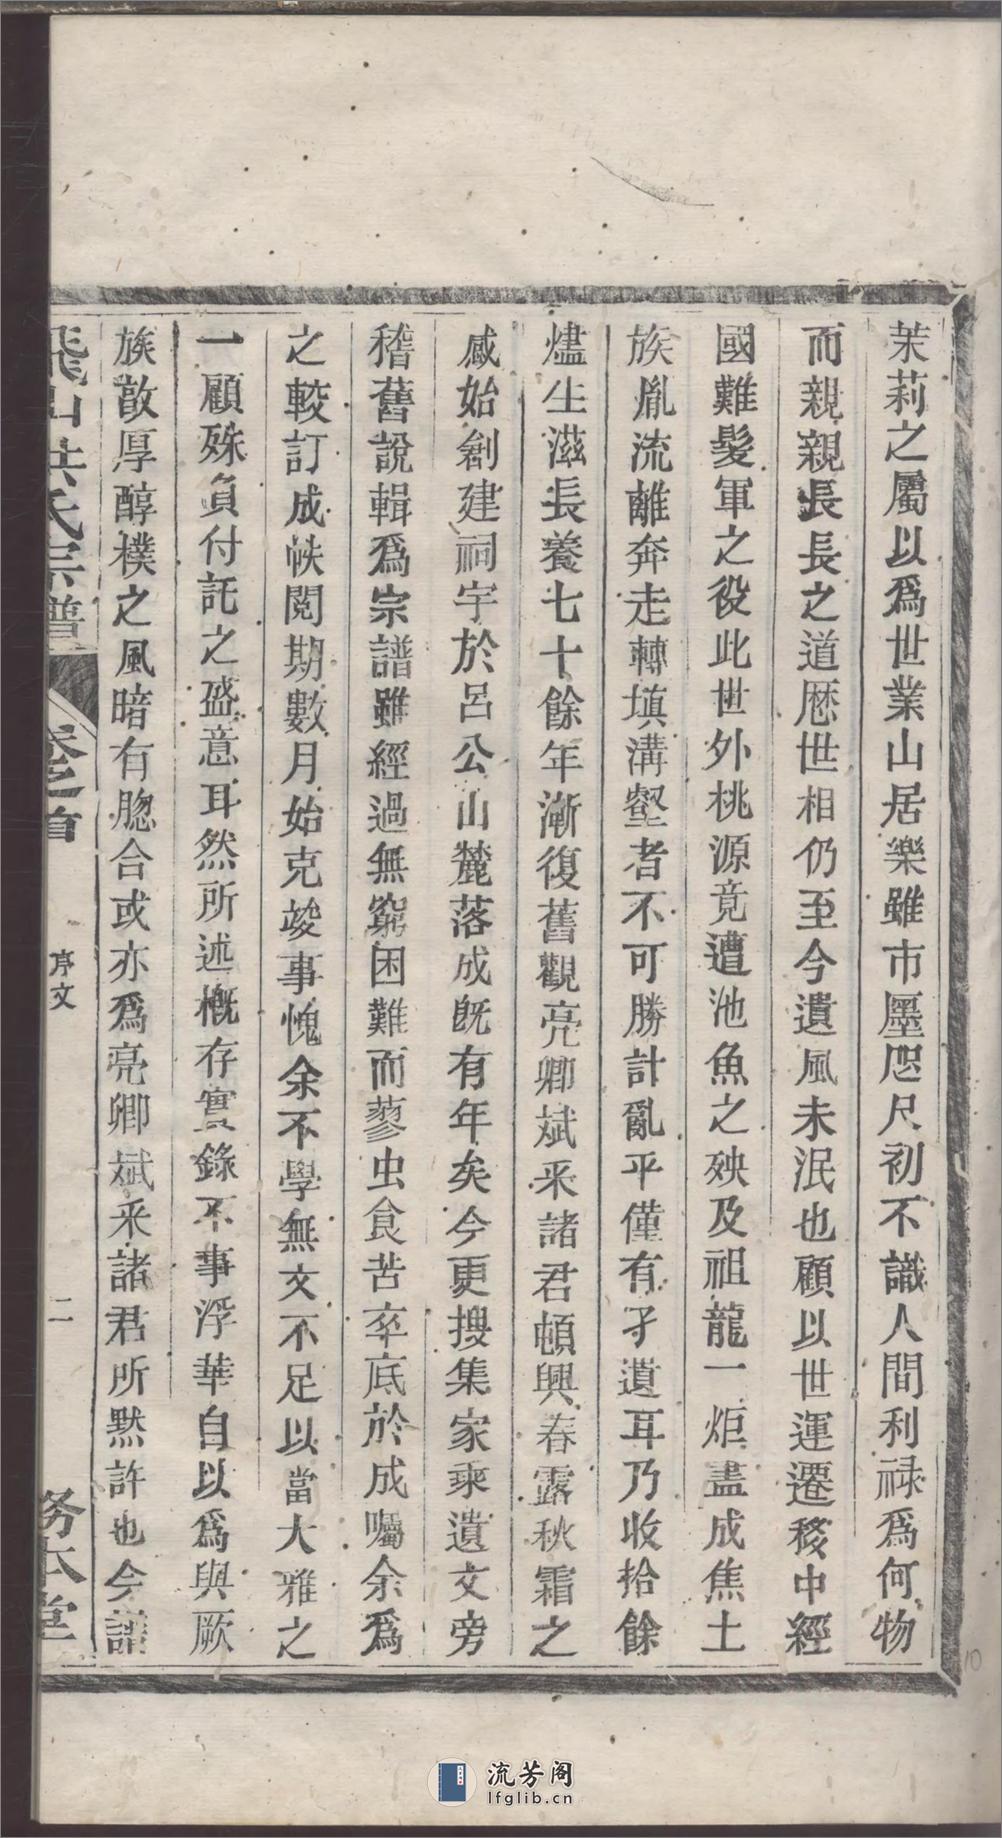 茉莉之屬以爲世業山居樂雖市墨咫尺初不識人間利禄爲何物
而親親長長之道厯世相仍至今遺風未泯也顧以世運遷移中經
國難髮軍之役此世外桃源竟遭池魚之殃及祖龍一炬盡成焦土
族胤流離奔走轉填溝壑者不可勝計亂平僅有孑遺耳乃收拾餘
燼生滋長養七十餘年漸復舊觀亮卿斌釆諸君頓興春露秋霜之
感始創建祠宇於呂公山麓落成旣有年矣今更搜集家乘遺文旁
稽舊說輯爲宗譜雖經過無窮困難而蓼虫食苦卒底於成囑余爲
之較訂成帙閱期數月始克竣事愧余不學無文不足以當大雅之
一顧殊負付託之盛意耳然所述概存實錄不事浮華自以爲與厥
族敦厚醇樸之風暗有脗合或亦爲亮卿斌釆諸君所默許也今譜
飛山洪氏宗譜
卷之首
序文
二
務本堂
10
流芳阁
lfglib.cn